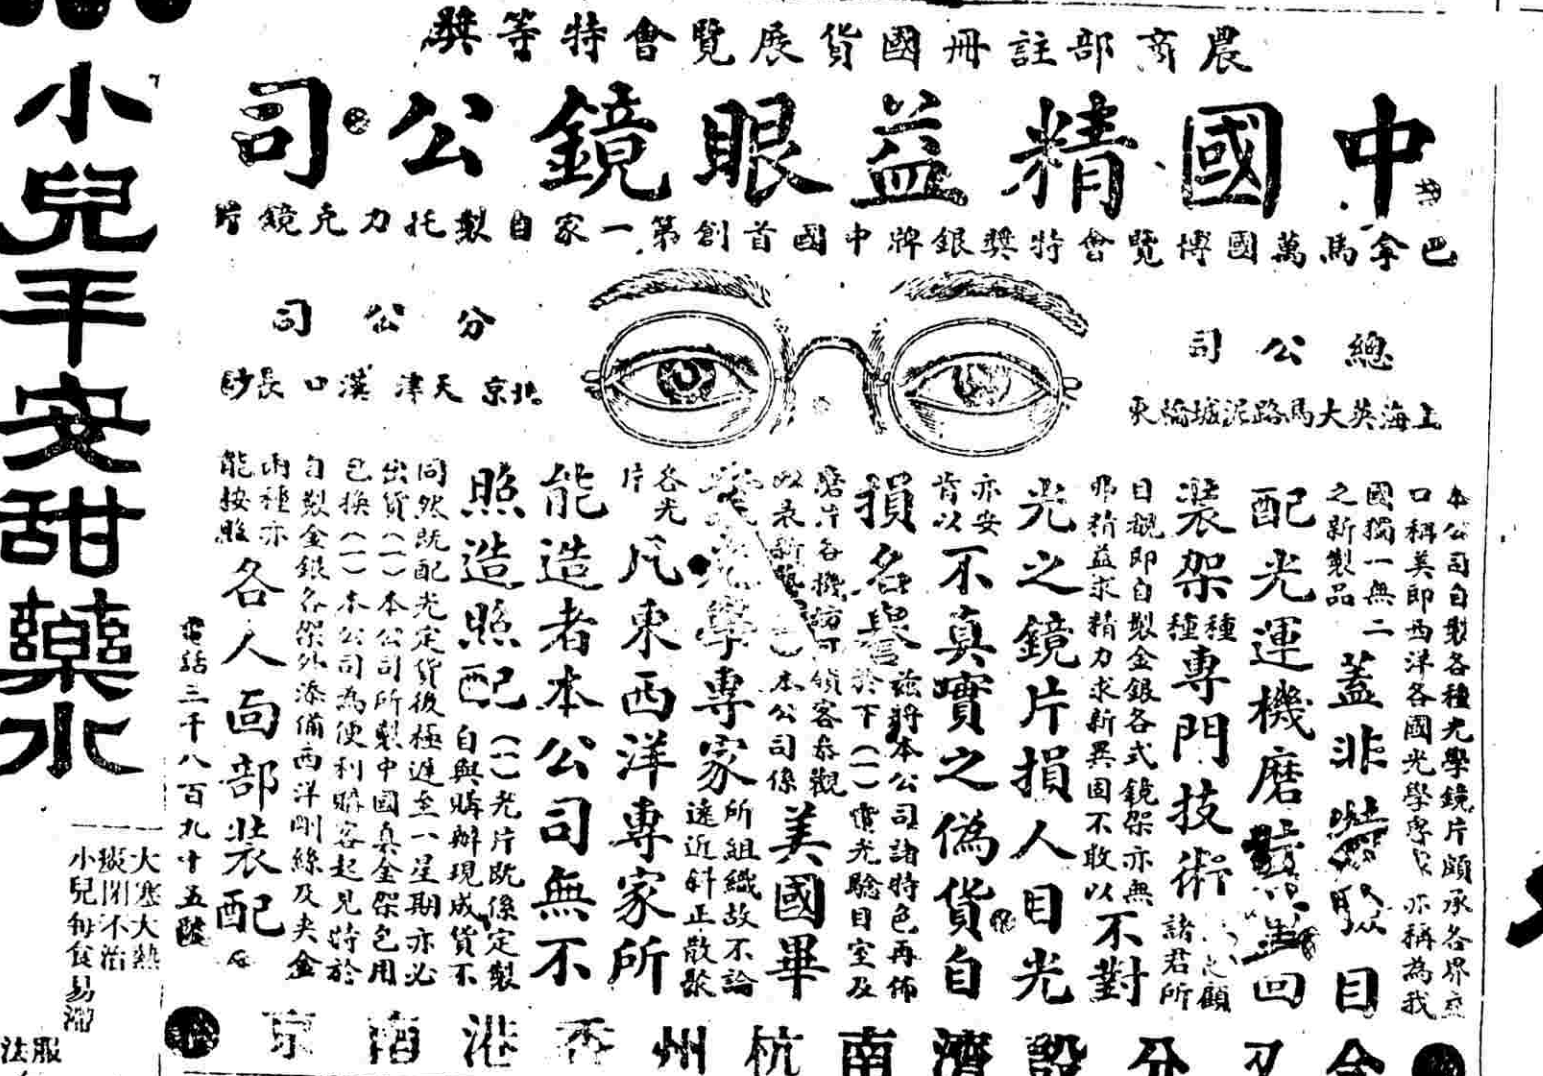 農商部註冊國貨展覽會特等獎
中國精益眼鏡公司
巴拿馬萬國博覽會特獎銀牌中國首創第一家自製托力克鏡片
總公司
上海英大馬路泥城橋東
分公司
北京天津漢口長沙
本公司自製各種光學鏡片頗承各界
口稱美即西洋各國光學專家亦稱為我
國獨一無二
之新製品
蓋非
目
配光運機磨
回
裝架種種專門技術
顧
諸君所
目覩即自製金銀各式鏡架亦無
弗精益求精力求新異固不敢以
不對
光之鏡片損人目光
亦安
肯以
不真實之偽貨自
損名譽
茲將本公司諸特色再佈
於下(一)
光驗目室及
磨片各機
顧客恭觀
本公司係
美國畢
光學專家
所組織故不論
遠近斜正散
各光
片
凡東西洋專家所
能造者本公司無不
照造照配
(二)光片既係定製
自與購辦現成貨不
同然既配光定貨後極遲至一星期亦必
出貨(一)本公司所製中國真金架包用
包換(一)本公司為便利購客起見特於
自製金銀各架外添備西洋剛絲及夾金
兩種亦
能按照
各人面部裝配
電話三千八百九十五號
分設濟南杭州香港南京
小兒平安甜藥水
大寒大熱
痰閉不治
小兒每食易滯
服
法